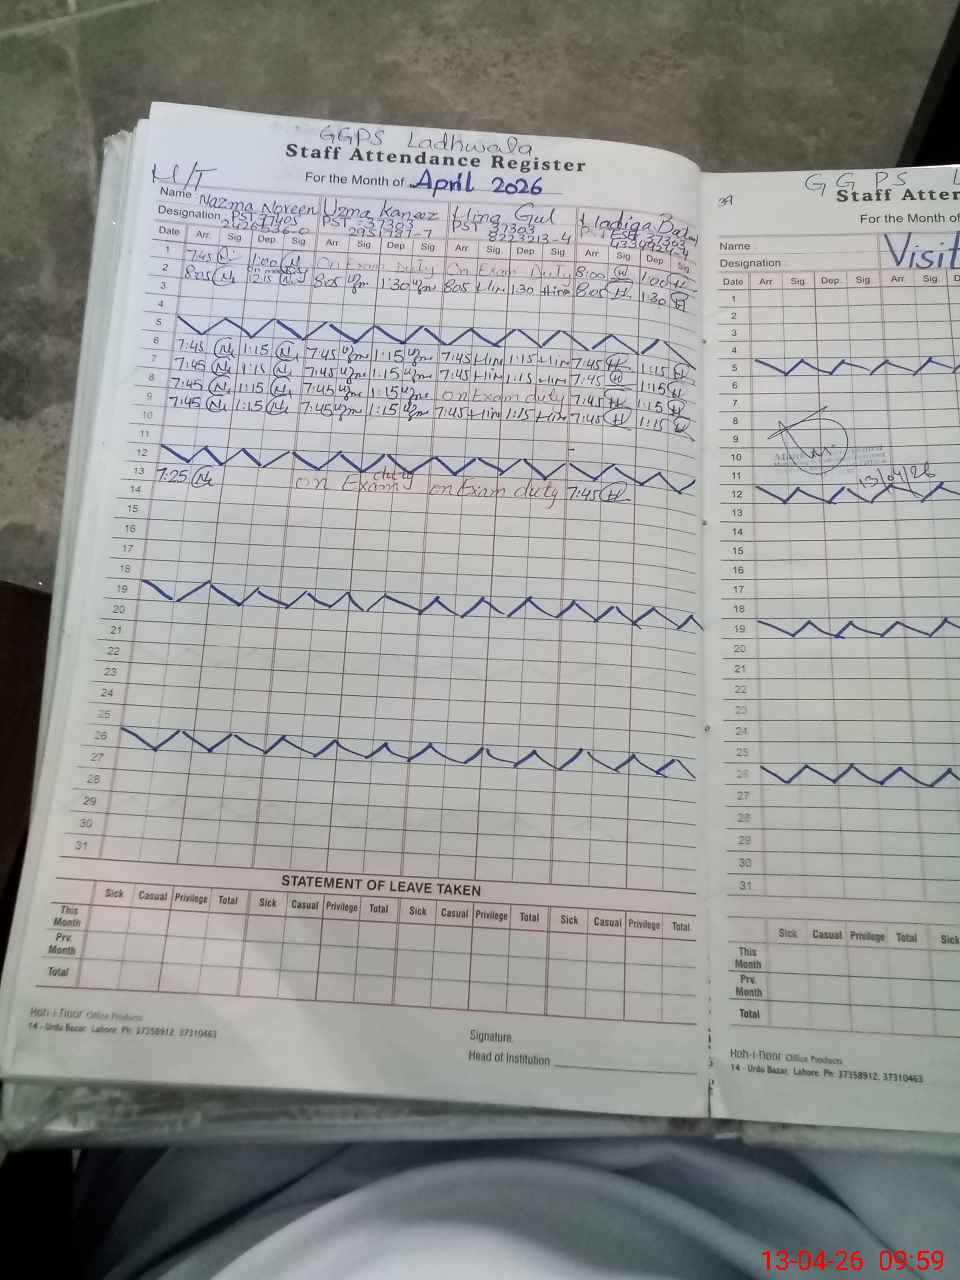 GGPS Ladhwala
Staff Attendance Register
For the Month of April 2026
Name Nazma Noreen Uzma Kanwaz Hina Gul Hadiqa
Designation PST 37303 PST 37303
8223213-4
Date Arr. Sig Dep. Sig Arr. Sig Dep Sig Arr. Sig Dep. Sig Arr Sig Dep Sig
1 7:45 1:00 On Exam Duty On Exam Duty 8:00 1:00
2 8:05 12:15 8:05 1:30 8:05 Hina 1:30 Hina 8:05 1:30
3
4
5
6 7:45 1:15 7:45 1:15 7:45 Hina 1:15 Hina 7:45 1:15
7 7:45 1:15 7:45 1:15 7:45 Hina 1:15 Hina 7:45 1:15
8 7:45 1:15 7:45 1:15 on Exam duty 7:45 1:15
9 7:45 1:15 7:45 1:15 7:45 Hina 1:15 Hina 7:45 1:15
10
11
12
13 7:25 on Exam duty on Exam duty 7:45
14
15
16
17
18
19
20
21
22
23
24
25
26
27
28
29
30
31
STATEMENT OF LEAVE TAKEN
Sick Casual Privilege Total Sick Casual Privilege Total Sick Casual Privilege Total Sick Casual Privilege Total
This Month
Prv. Month
Total
Koh-i-noor Office Products
14 - Urdu Bazar, Lahore. Ph: 37358912, 37310463
Signature.
Head of Institution
GGPS L
Staff Atten
For the Month of
Name :
Visit
Designation :
Date Arr Sig Dep Sig Arr. Sig D
1
2
3
4
5
6
7
8
9
10
11
13/04/26
12
13
14
15
16
17
18
19
20
21
22
23
24
25
26
27
28
29
30
31
Sick Casual Privilege Total Sick
This Month
Prv. Month
Total
Koh-i-noor Office Products
14 - Urdu Bazar, Lahore. Ph: 37358912, 37310463
13-04-26 09:59